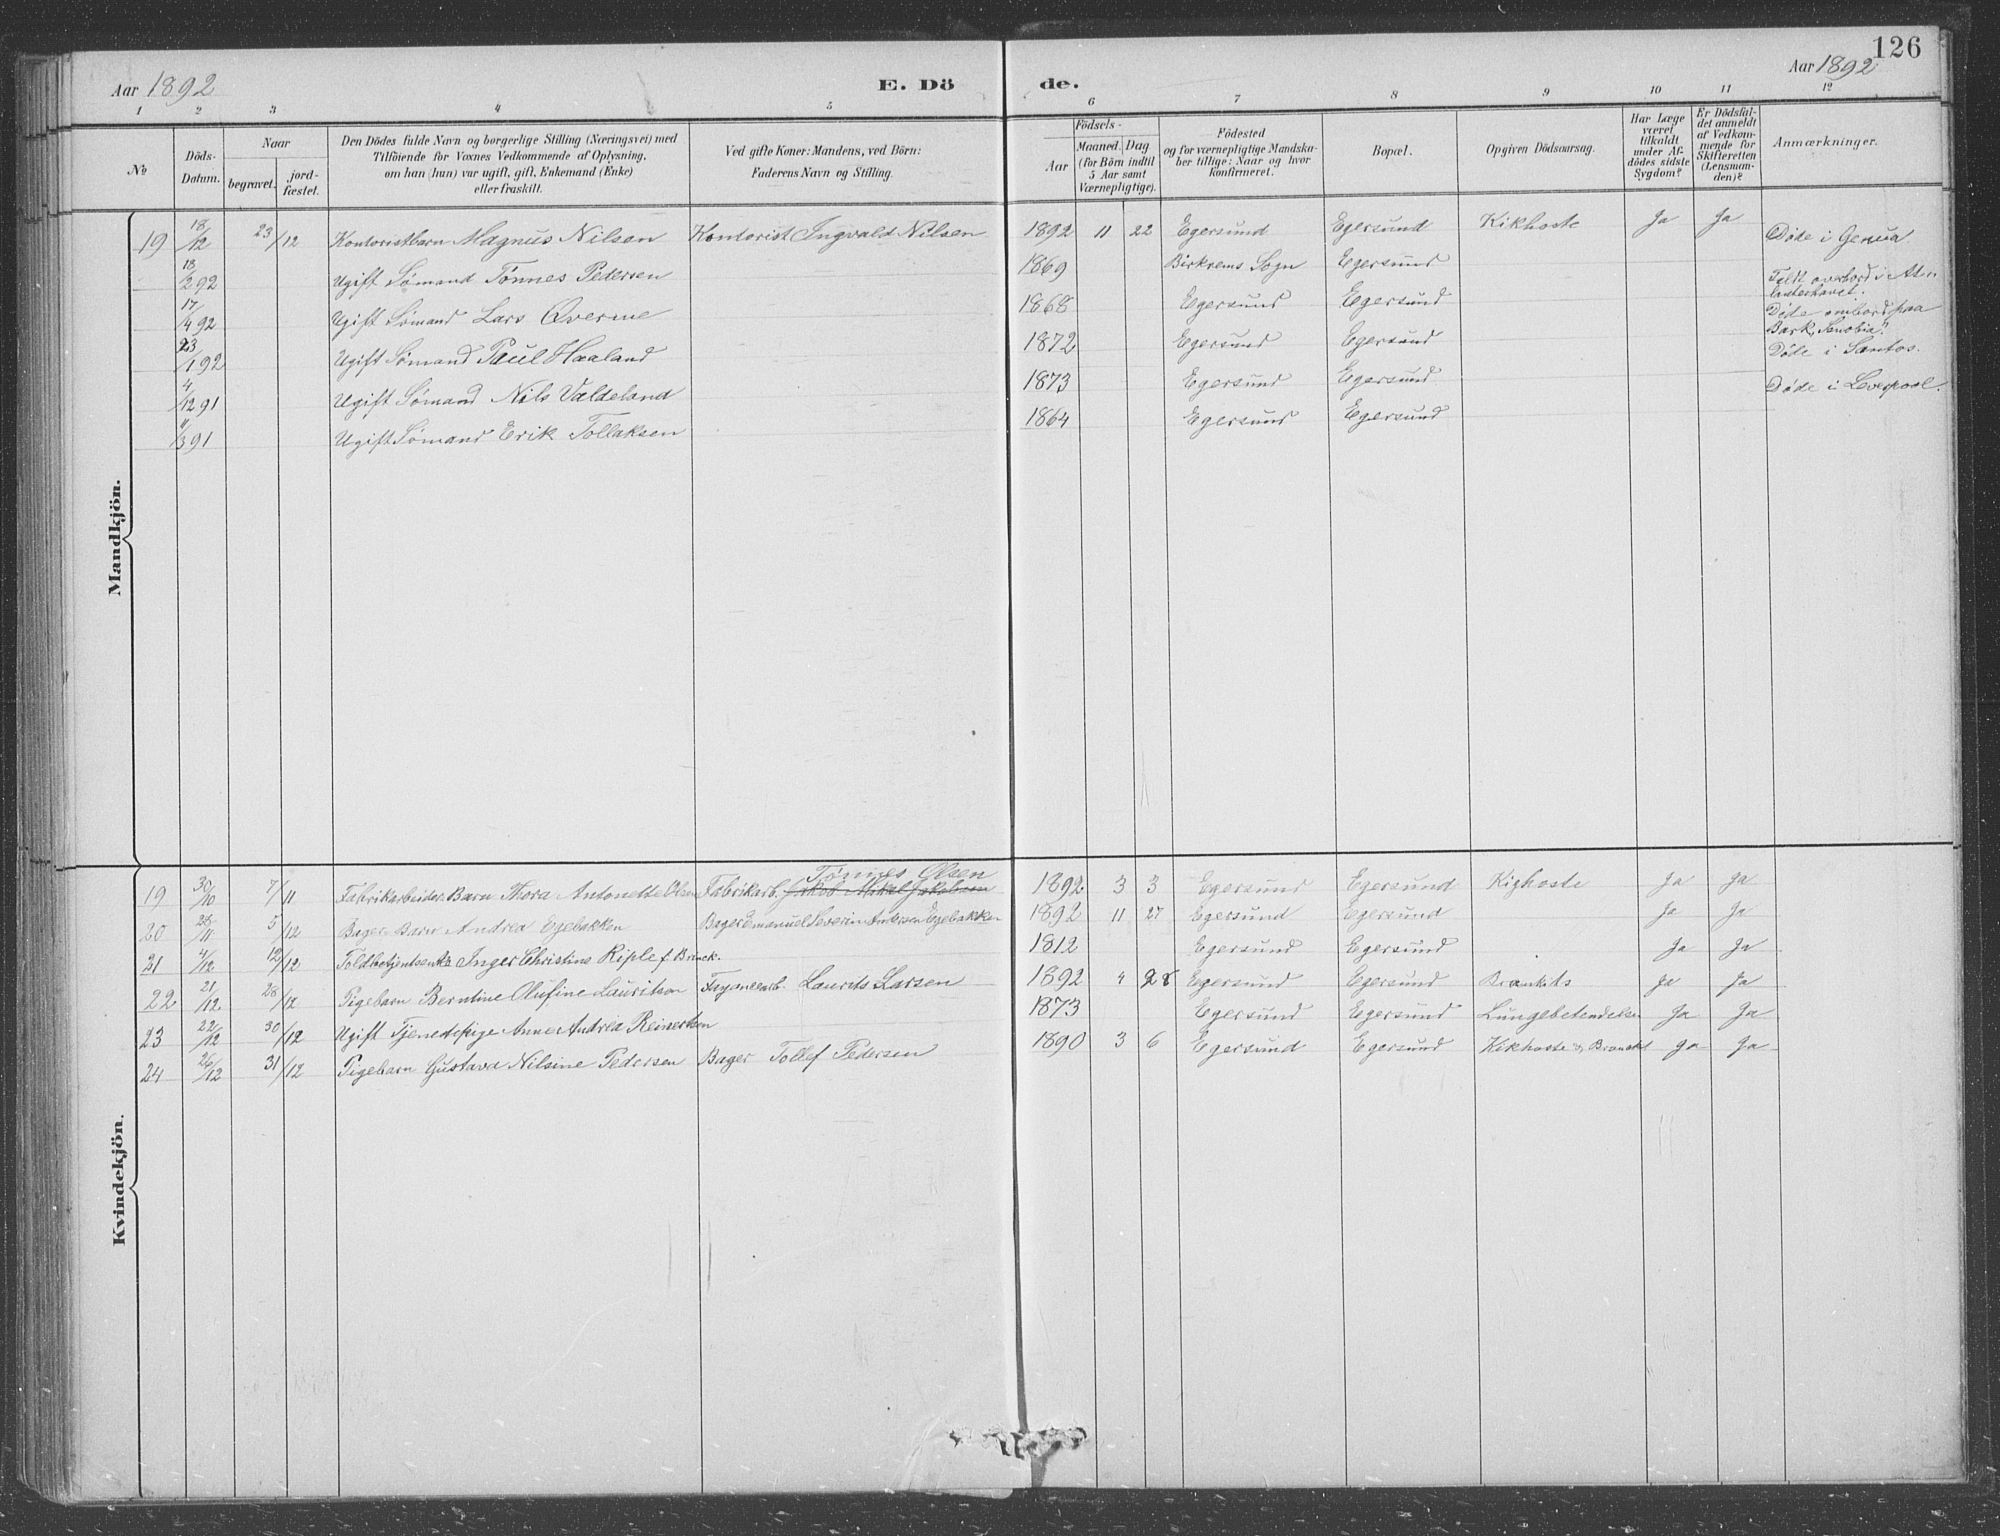 126
Aar 1892 E. Dö de. Aar 1892
1 2 3 4 5 6 7 8 9 10 11 12
No
Döds-
Datum.
Naar
begravet.
jord-
fæstet.
Den Dödes fulde Navn og borgerlige Stilling (Næringsvei) med
Tilföiende for Voxnes Vedkommende af Oplysning,
om han (hun) var ugift, gift, Enkemand (Enke)
eller fraskilt.
Ved gifte Koner: Mandens, ved Börn:
Faderens Navn og Stilling.
Födsels-
Aar
Maaned. Dag
(for Börn indtil
5 Aar samt
Værnepligtige).
Födested
og for værnepligtige Mandska-
ber tillige: Naar og hvor
konfirmeret.
Bopæl.
Opgiven Dödsaarsag.
Har Læge
været
tilkaldt
under Af-
dödes sidste
Sygdom?
Er Dödsfal-
det anmeldt
af Vedkom-
mende for
Skifteretten
(Lensman-
den)?
Anmærkninger.
Mandkjön.
19 18/12 23/12 Kontoristbarn Magnus Nilsen Kontorist Ingvald Nilsen 1892 11 22 Egersund Egersund Kikhoste Ja Ja
18/2 92 Ugift Sømand Tønnes Pedersen 1869 Birkrems Sogn Egersund Døde i Genua
17/4 92 Ugift Sømand Lars Øverme 1868 Egersund Egersund Faldt overbord i At-
lanterhavet.
23/1 92 Ugift Sømand Paul Haaland 1872 Egersund Egersund Døde ombord paa
Bark "Senobia".
4/12 91 Ugift Sømand Nils Valdeland 1873 Egersund Egersund Døde i Santos.
11/3 91 Ugift Sømand Erik Tollaksen 1864 Egersund Egersund Døde i Leverpool.
Kvindekjön.
19 30/10 7/11 Fabrikarbeider Barn Thora Antonette Olsen Fabrikarb. Jakob Mikal Jakobsen Tønnes Olsen 1892 3 3 Egersund Egersund Kighoste Ja Ja
20 28/11 5/12 Bager Barn Andrea Egebakken Bager Emanuel Severin Andersen Egebakken 1892 11 27 Egersund Egersund Ja Ja
21 4/12 12/12 Toldbetjentsenke Inger Christine Riple f. Brinck. 1812 Egersund Egersund Ja Ja
22 21/12 28/12 Pigebarn Berntine Olufine Lauritson Fayancearb. Laurits Larsen 1892 4 28 Egersund Egersund Bronkits Ja Ja
23 22/12 30/12 Ugift Tjenestepige Anne Andrea Reinertsen 1873 Egersund Egersund Lungebetendelse Ja Ja
24 26/12 31/12 Pigebarn Gustava Nilsine Pedersen Bager Tollef Pedersen 1890 3 6 Egersund Egersund Kikhoste & Bronckt Ja Ja